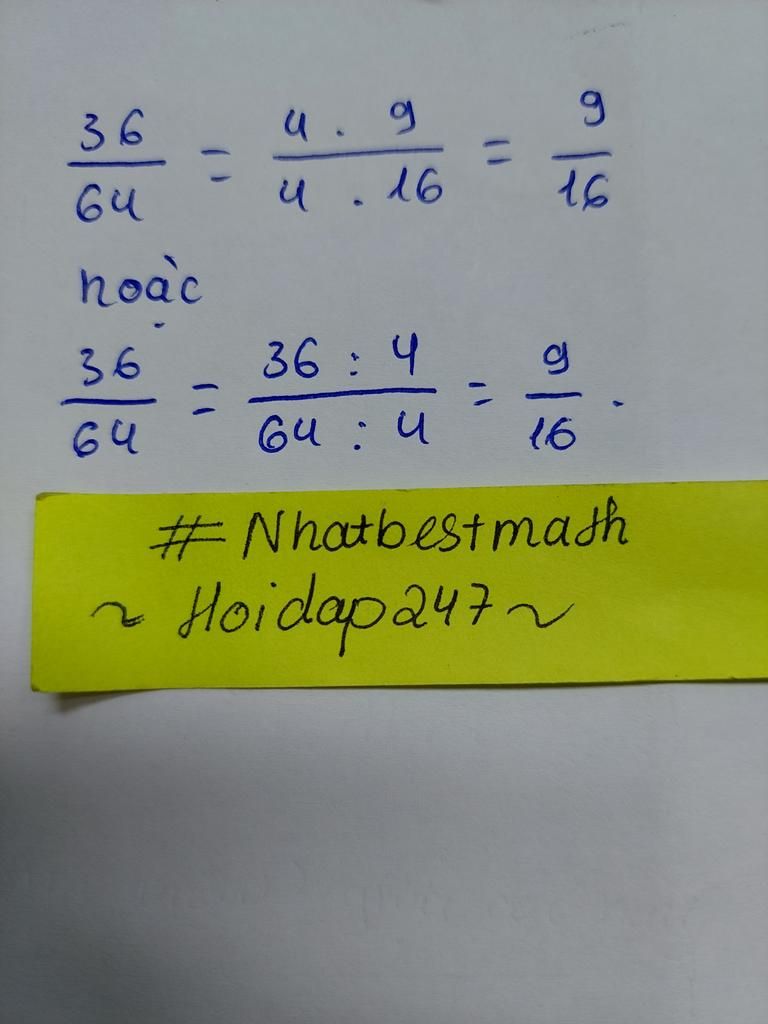 36/64 = 4 . 9/4 . 16 = 9/16
hoặc
36/64 = 36 : 4/64 : 4 = 9/16 .
#Nhatbestmath
~ Hoidap247 ~